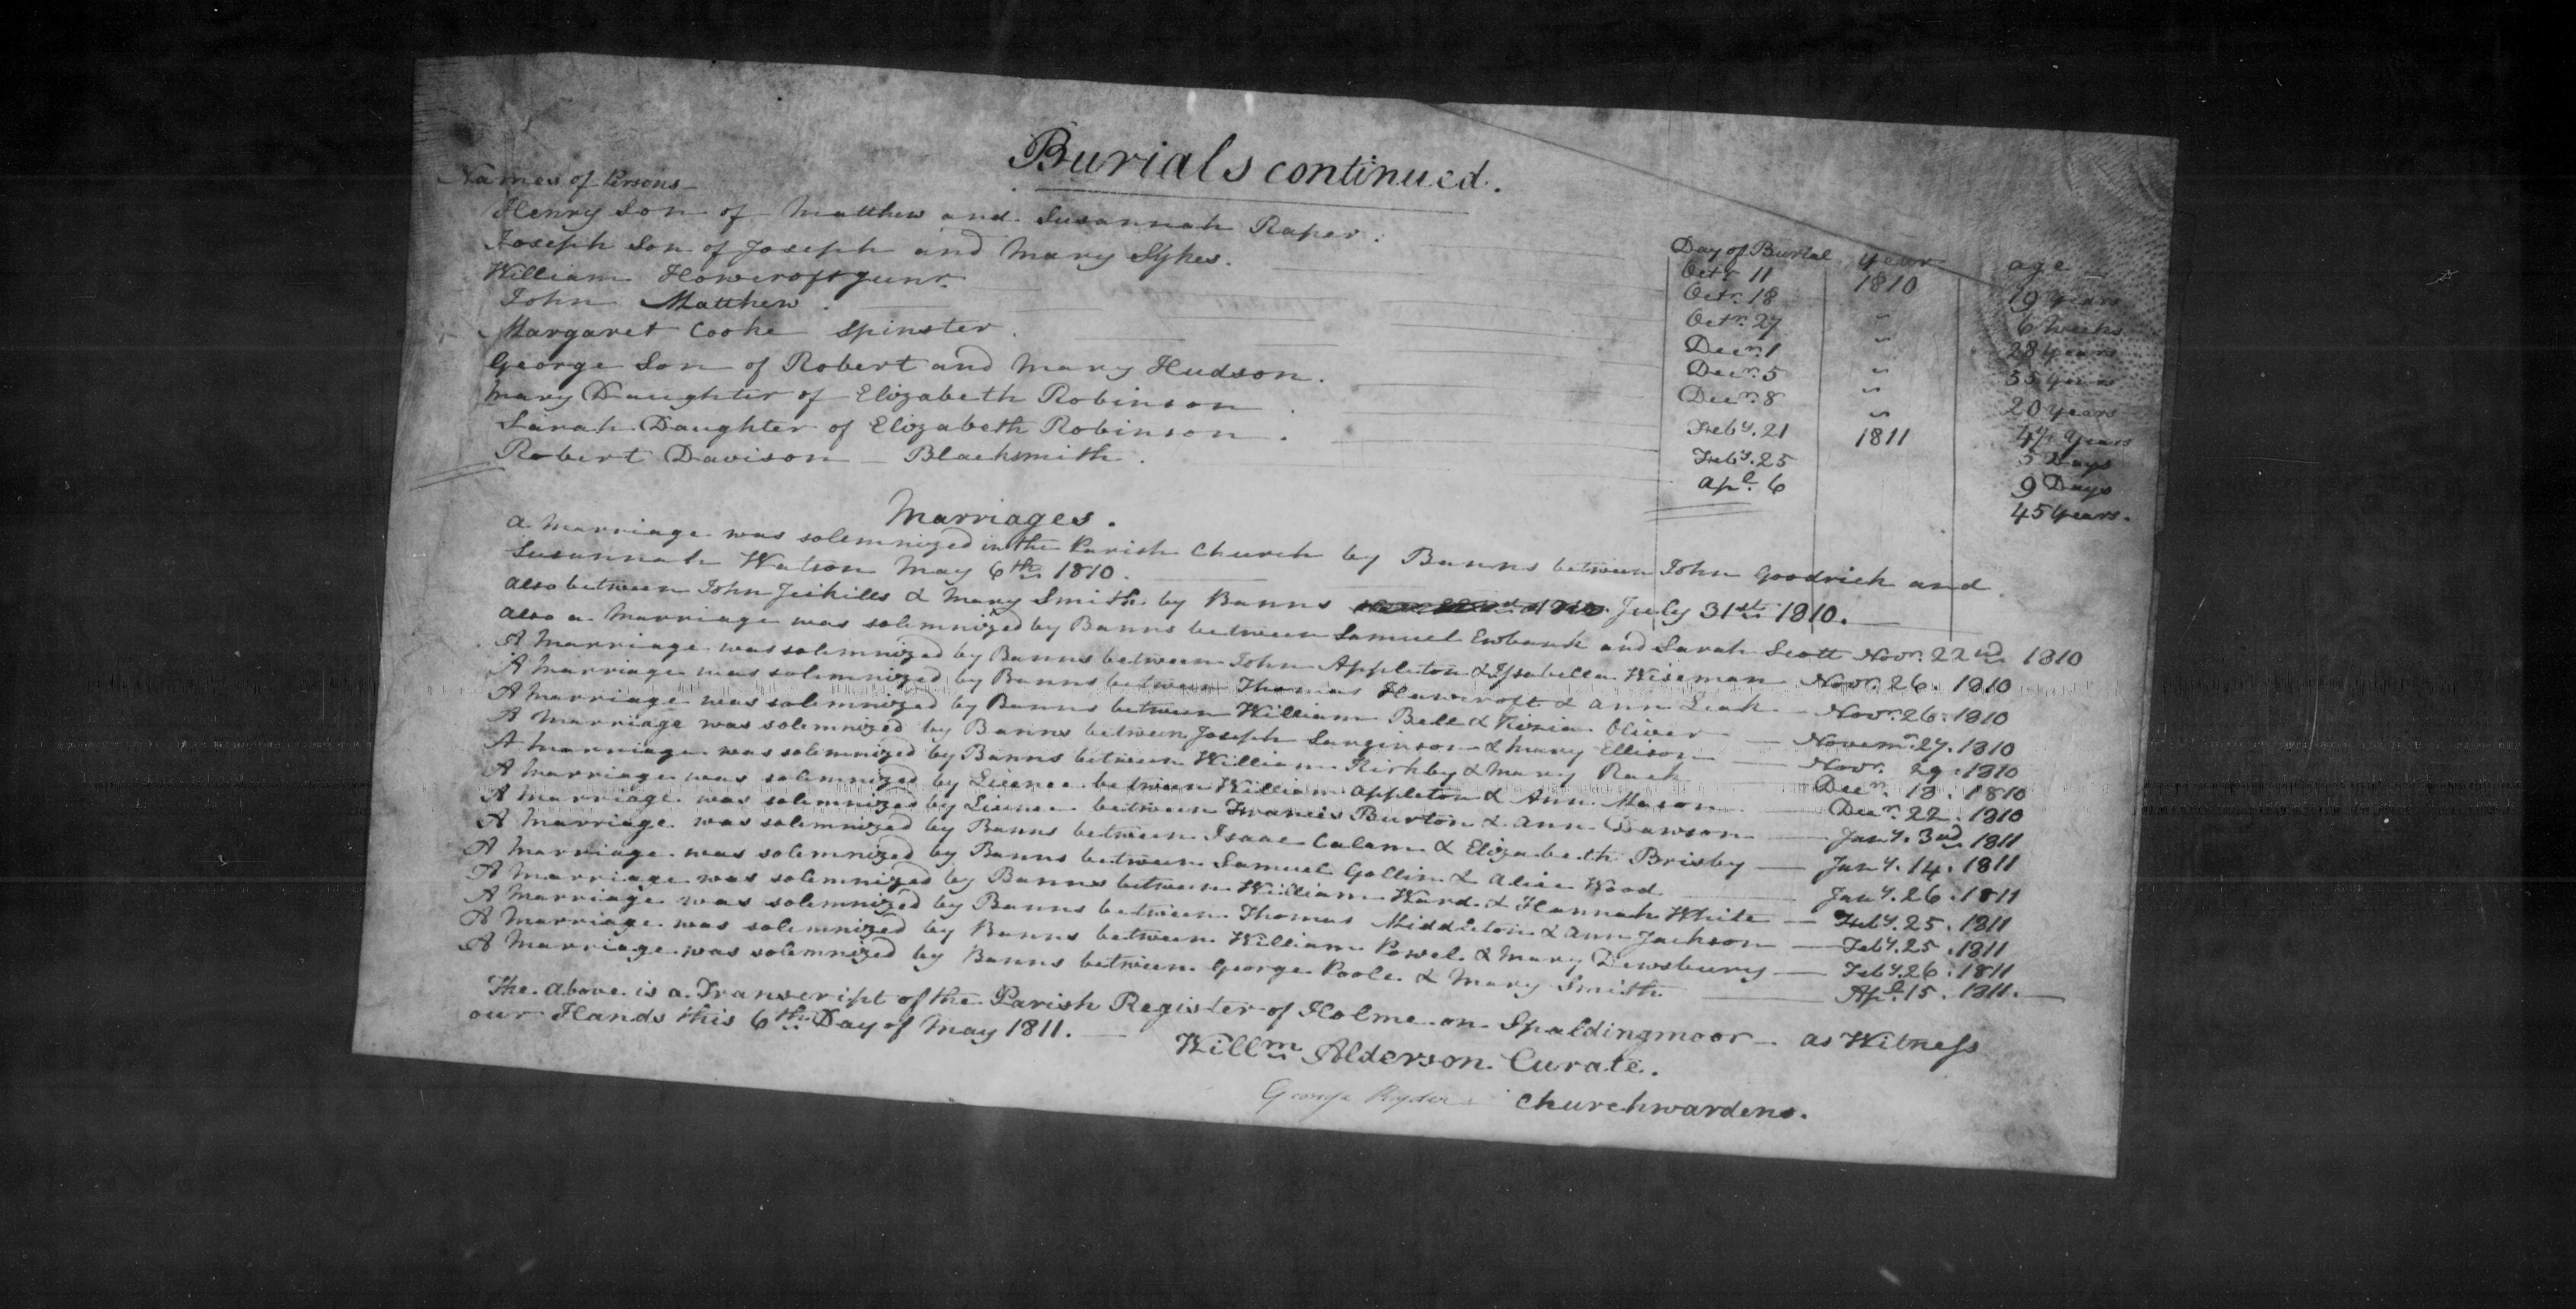 Burials continued.
Names of Persons Day of Burial year age
Henry Son of Matthew and Susannah Raper. Octr. 11 1810 19 years
Joseph Son of Joseph and Mary Sykes. Octr. 18 " 6 Weeks
William Howcroft junr. Octr. 27 " 28 years
John Matthew. Decr. 1 " 55 years
Margaret Cooke Spinster. Decr. 5 " 20 years
George Son of Robert and Mary Hudson. Decr. 8 " years
Mary Daughter of Elizabeth Robinson. Feby. 21 1811 5 Days
Sarah Daughter of Elizabeth Robinson. Feby. 25 9 Days
Robert Davison - Blacksmith. Apl. 6 45 years.
Marriages.
a Marriage was solemnized in the Parish Church by Banns between John Goodrich and
Susannah Watson May 6th 1810.
also between John & Mary Smith by Banns July 31st 1810.
also a Marriage was solemnized by Banns between Samuel Ewbank and Sarah Scott Novr. 22nd 1810
A Marriage was solemnized by Banns between John Appleton & Isabella Wiseman Novr. 26. 1810
A Marriage was solemnized by Banns between Thomas Hawcroft & Ann Leak - Novr. 26. 1810
A Marriage was solemnized by Banns between William Bell & Kezia Oliver - Novemr. 27. 1810
A Marriage was solemnized by Banns between Joseph & Mary Ellison - Novr. 29. 1810
A Marriage was solemnized by Banns between William Kirkby & Mary Decr. 13. 1810
A Marriage was solemnized by Licence between William Appleton & Ann Mason - Decr. 22. 1810
A Marriage was solemnized by Licence between Francis Burton & Ann Dawson - Jany. 3rd 1811
A Marriage was solemnized by Banns between Isaac Calam & Elizabeth Brisby - Jany. 14. 1811
A Marriage was solemnized by Banns between Samuel Gollin & Alice Wood - Jany. 26. 1811
A Marriage was solemnized by Banns between William Ward & Hannah White - Feby. 25. 1811
A Marriage was solemnized by Banns between Thomas Middleton & Ann Jackson - Feby. 25. 1811
A Marriage was solemnized by Banns between William Powel & Mary Dewsbury - Feby. 26. 1811
A Marriage was solemnized by Banns between George Poole & Mary Smith - Apl. 15. 1811.
The above is a Transcript of the Parish Register of Holme on Spaldingmoor - as Witness
our Hands this 6th Day of May 1811.
Willm Alderson Curate.
George Ryder Churchwardens.